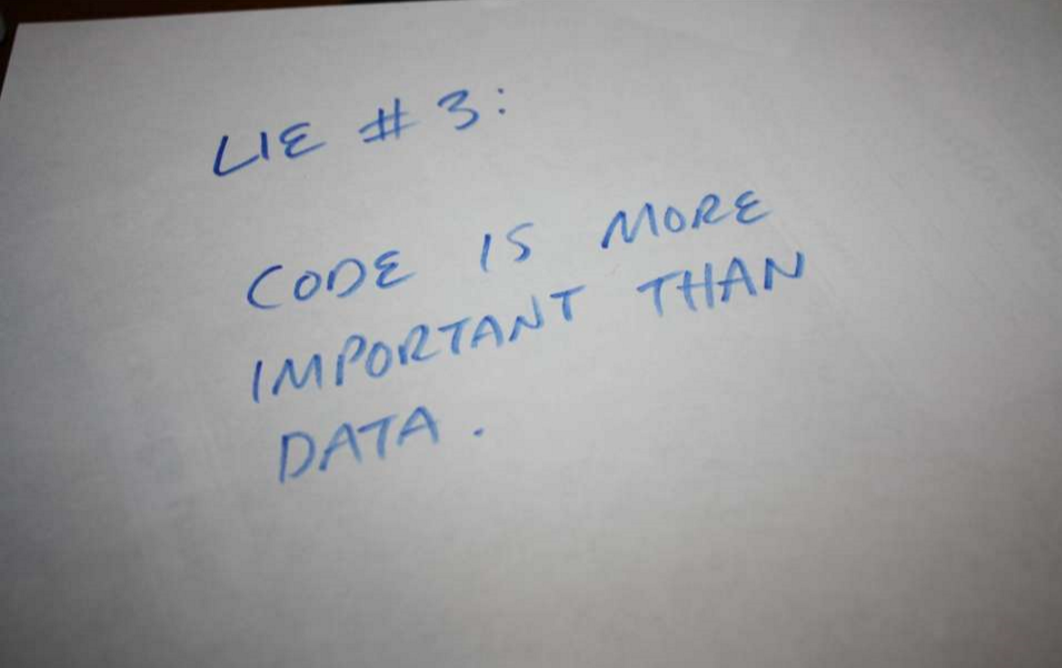 LIE # 3:
CODE IS MORE
IMPORTANT THAN
DATA.